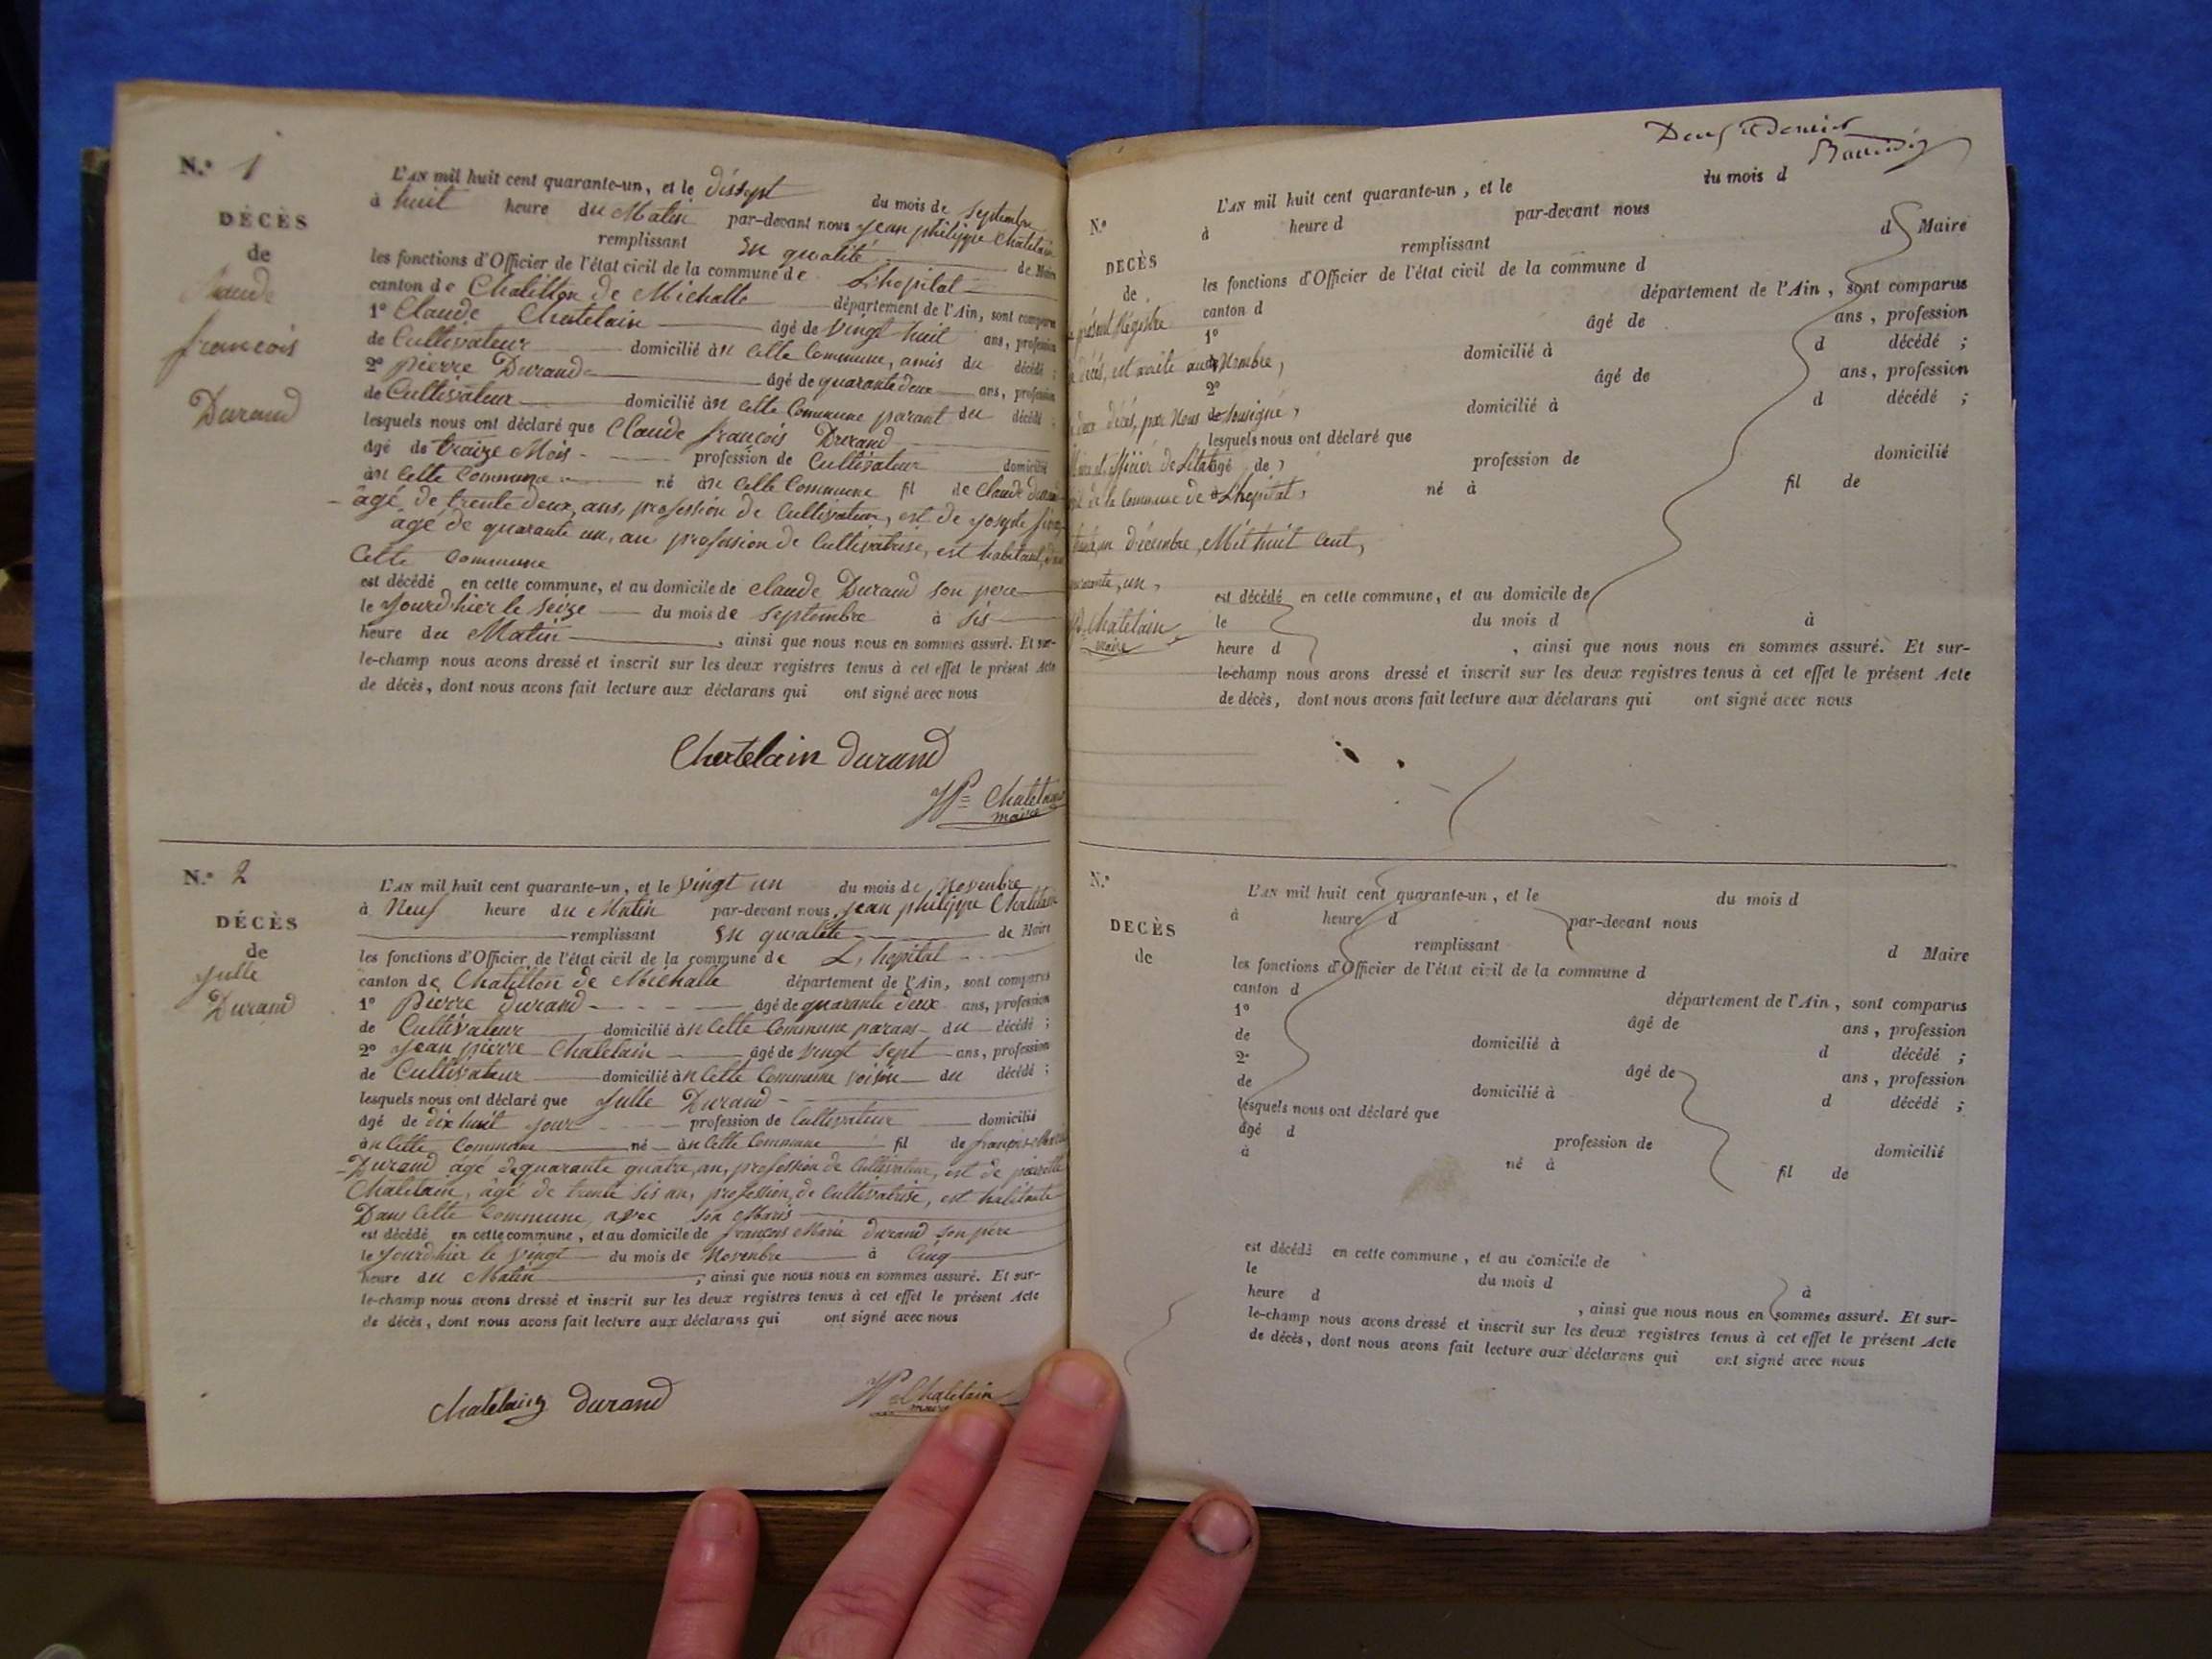 N.º 1
DÉCÈS
de
Claude
françois
Durand
L'AN mil huit cent quarante-un, et le dissept du mois de Septembre
à huit heure du Matin par-devant nous jean philippe Chatelain
remplissant En qualité de Maire
les fonctions d'Officier de l'état civil de la commune de Lhopital
canton de Chatillon de Michalle département de l'Ain, sont comparus
1º Claude Chatelain âgé de vingt huit ans, profession
de Cultivateur domicilié àn cette Commune, amis du décédé ;
2º pierre Durand âgé de quarante deux ans, profession
de Cultivateur domicilié àn cette Commune parant du décédé ;
lesquels nous ont déclaré que Claude françois Durand
âgé de traize Mois profession de Cultivateur domicilié
àn cette Commune né àn cette Commune fil de Claude Durand
âgé de trente deux, ans, profession de Cultivateur, est de
âgé de quarante un, an profession de Cultivatrise, est habitant,
Cette Commune
est décédé en cette commune, et au domicile de Claude Durand son pere
le jourdhier le seize du mois de septembre à sis
heure du Matin , ainsi que nous nous en sommes assuré. Et sur-
le-champ nous avons dressé et inscrit sur les deux registres tenus à cet effet le présent Acte
de décès, dont nous avons fait lecture aux déclarans qui ont signé avec nous
Chatelain durand
JP Chatelain
maire
N.º 2
DÉCÈS
de
Julle
Durand
L'AN mil huit cent quarante-un, et le vingt un du mois de Novenbre
à Neuf heure du Matin par-devant nous jean philippe Chatelain
remplissant En qualité de Maire
les fonctions d'Officier de l'état civil de la commune de L,hopital
canton de Chatillon de Michalle département de l'Ain, sont comparus
1º Pierre durand âgé de quarante deux ans, profession
de Cultivateur domicilié àn cette Commune parans du décédé ;
2º jean pierre Chatelain âgé de vingt sept ans, profession
de Cultivateur domicilié àn cette Commune voisin du décédé ;
lesquels nous ont déclaré que Julle Durand
âgé de dix huit jour profession de Cultivateur domicilié
àn cette Commune né àn cette Commune fil de françois Marie
Durand âgé de quarante quatre, an, profession de Cultivateur, est de pierrette
Chatelain, âgé de trente sis an, profession, de Cultivatrise, est habitante
Dans Cette Commune, avec son Maris
est décédé en cette commune, et au domicile de françois Marie durand son pére
le jourdhier le vingt du mois de Novenbre à Cinq
heure du Matin ; ainsi que nous nous en sommes assuré. Et sur-
le-champ nous avons dressé et inscrit sur les deux registres tenus à cet effet le présent Acte
de décès, dont nous avons fait lecture aux déclarans qui ont signé avec nous
chatelain durand
JP Chatelain
maire
Deuxième et dernier
N.º
DECÈS
de
L'AN mil huit cent quarante-un, et le du mois d
à heure d par-devant nous
remplissant d Maire
les fonctions d'Officier de l'état civil de la commune d
canton d département de l'Ain, sont comparus
1º âgé de ans, profession
de domicilié à d décédé ;
2º âgé de ans, profession
de domicilié à d décédé ;
lesquels nous ont déclaré que
âgé de profession de domicilié
à né à fil de
présent Régistre
décés, est arrêté au Nombre,
deux décés, par Nous Sousigné,
officier de Létat
de la Commune de Lhopital,
décembre, Mil huit Cent,
quarante, un,
Chatelain
maire
est décédé en cette commune, et au domicile de
le du mois d à
heure d , ainsi que nous nous en sommes assuré. Et sur-
le-champ nous avons dressé et inscrit sur les deux registres tenus à cet effet le présent Acte
de décès, dont nous avons fait lecture aux déclarans qui ont signé avec nous
N.º
DECÈS
de
L'AN mil huit cent quarante-un, et le du mois d
à heure d par-devant nous
remplissant d Maire
les fonctions d'Officier de l'état civil de la commune d
canton d département de l'Ain, sont comparus
1º âgé de ans, profession
de domicilié à d décédé ;
2º âgé de ans, profession
de domicilié à d décédé ;
lesquels nous ont déclaré que
âgé d profession de domicilié
à né à fil de
est décédé en cette commune, et au domicile de
le du mois d à
heure d , ainsi que nous nous en sommes assuré. Et sur-
le-champ nous avons dressé et inscrit sur les deux registres tenus à cet effet le présent Acte
de décès, dont nous avons fait lecture aux déclarans qui ont signé avec nous